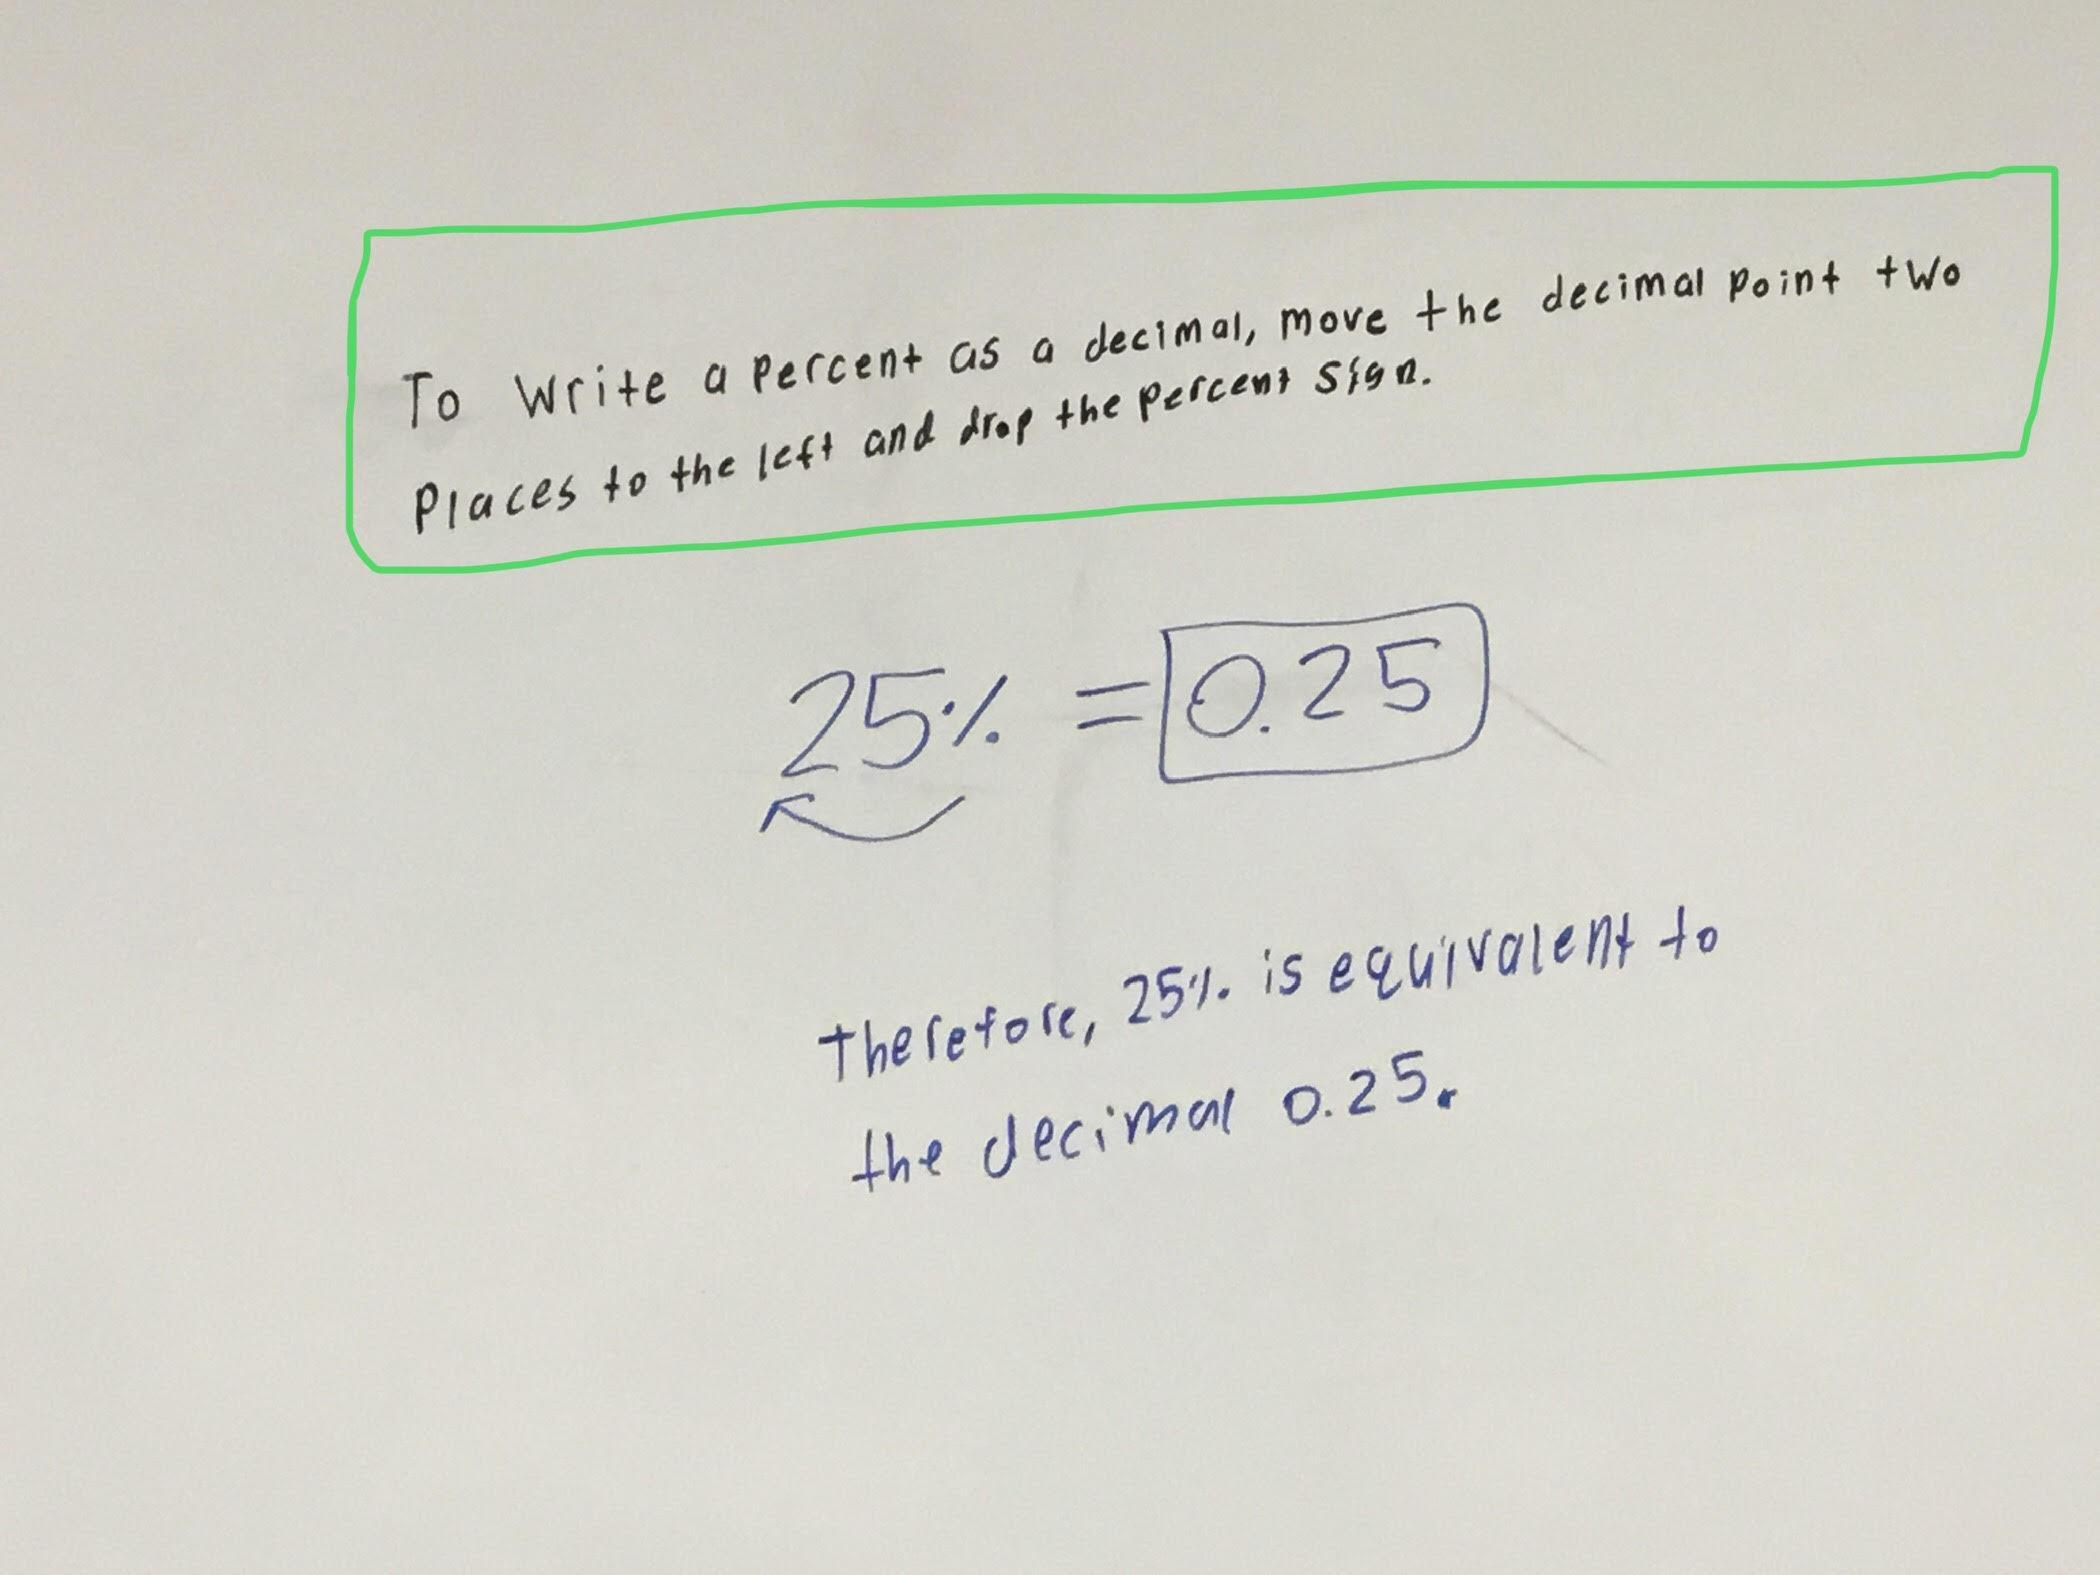 To write a percent as a decimal, move the decimal point two
places to the left and drop the percent sign.
25% = 0.25
therefore, 25% is equivalent to
the decimal 0.25.